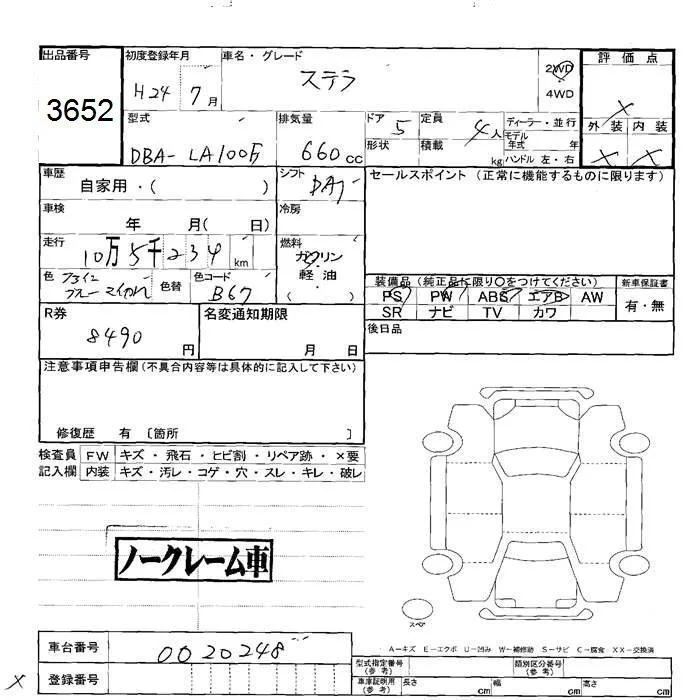 出品番号
3652
初度登録年月
H24 7月
車名・グレード
ステラ
2WD
4WD
評価点
×
外装 内装
× ×
型式
DBA- LA100F
排気量
660cc
ドア 5
形状
定員 4人
積載 kg
ディーラー・並行
モデル年式 年
ハンドル 左・右
車歴
自家用・( )
シフト
車検
年 月( 日)
冷房
走行
10万5千234km
燃料
ガソリン
軽油
( )
セールスポイント(正常に機能するものに限ります)
色
ブルーマイカ
色替
色コード
B67
装備品(純正品に限り○をつけてください)
PS PW ABS エアB AW
SR ナビ TV カワ
新車保証書
有・無
R券
8490円
名変通知期限
月 日
後日品
注意事項申告欄(不具合内容等は具体的に記入して下さい)
修復歴 有 〔箇所 〕
検査員記入欄
FW キズ・飛石・ヒビ割・リペア跡・×要
内装 キズ・汚レ・コゲ・穴・スレ・キレ・破レ
ノークレーム車
スペア
A-キズ E-エクボ U-凹み W-補修跡 S-サビ C-腐食 XX-交換済
車台番号
0020248
× 登録番号
型式指定番号(参考)
類別区分番号(参考)
車庫証明用(参考)
長さ cm 幅 cm 高さ cm